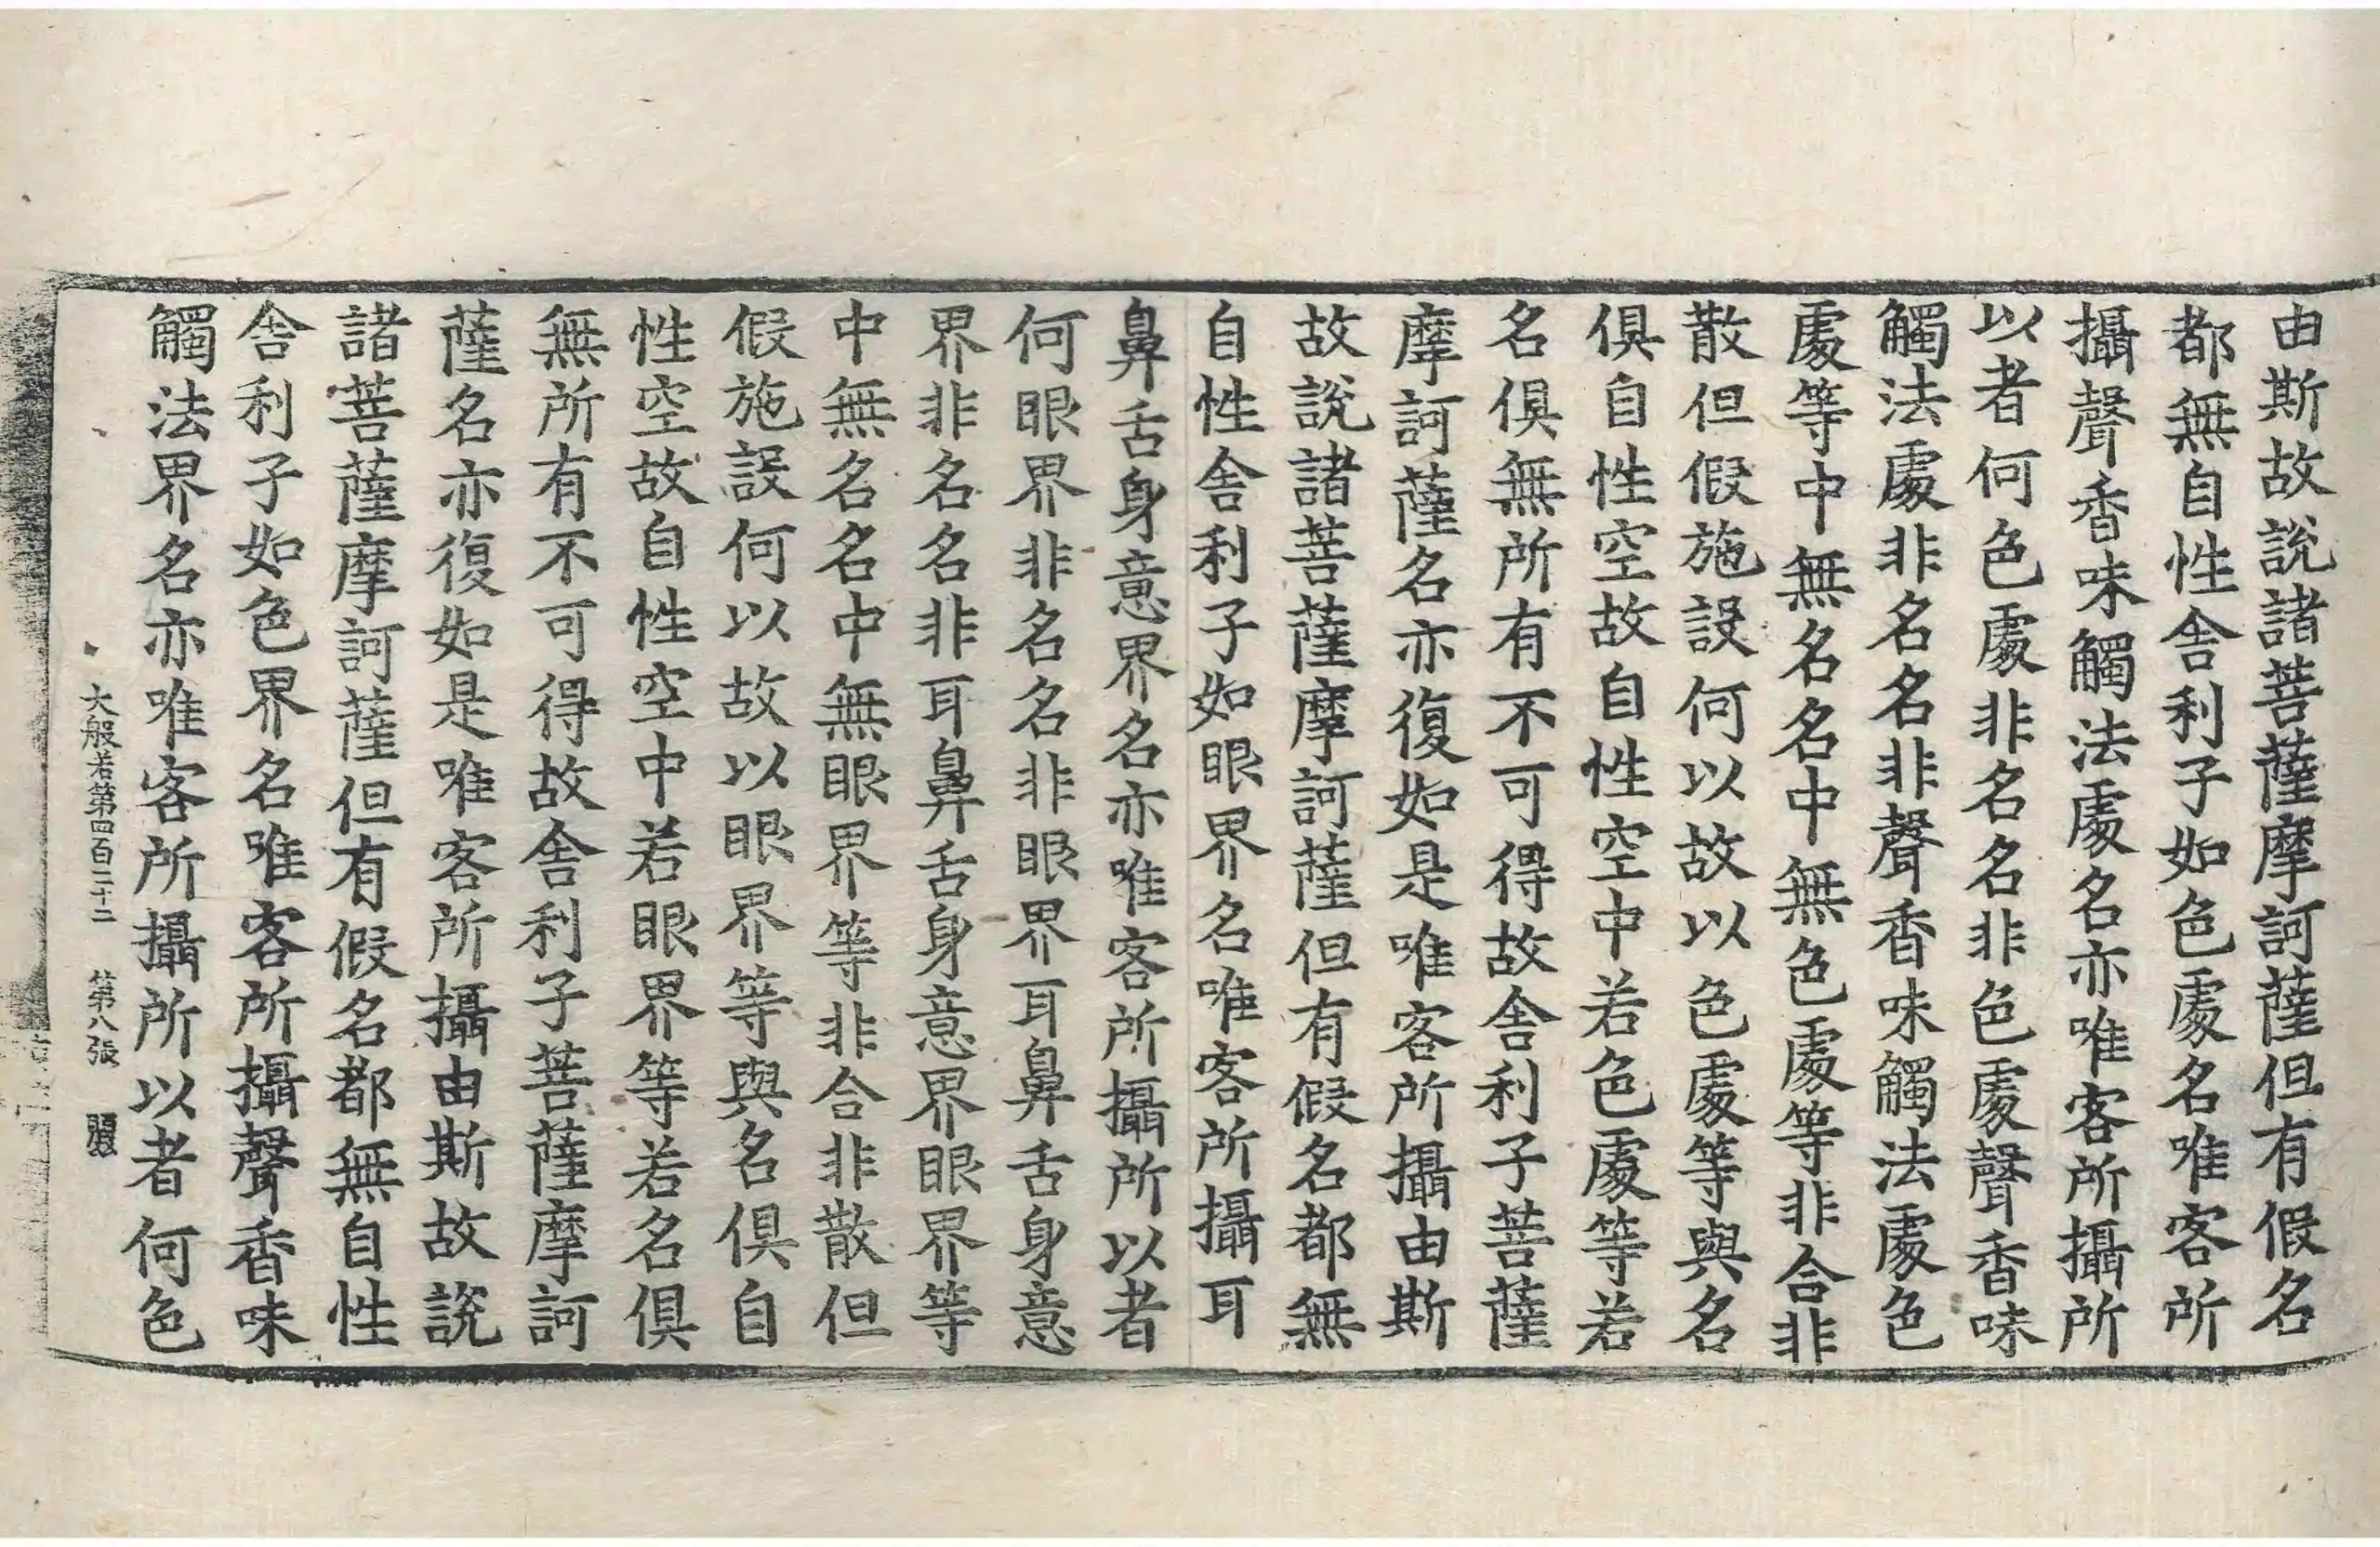 由斯故說諸菩薩摩訶薩但有假名
都無自性舍利子如色處名唯客所
攝聲香味觸法處名亦唯客所攝所
以者何色處非名名非色處聲香味
觸法處非名名非聲香味觸法處色
處等中無名名中無色處等非合非
散但假施設何以故以色處等與名
俱自性空故自性空中若色處等若
名俱無所有不可得故舍利子菩薩
摩訶薩名亦復如是唯客所攝由斯
故說諸菩薩摩訶薩但有假名都無
自性舍利子如眼界名唯客所攝耳
鼻舌身意界名亦唯客所攝所以者
何眼界非名名非眼界耳鼻舌身意
界非名名非耳鼻舌身意界眼界等
中無名名中無眼界等非合非散但
假施設何以故以眼界等與名俱自
性空故自性空中若眼界等若名俱
無所有不可得故舍利子菩薩摩訶
薩名亦復如是唯客所攝由斯故說
諸菩薩摩訶薩但有假名都無自性
舍利子如色界名唯客所攝聲香味
觸法界名亦唯客所攝所以者何色
大般若第四百二十二 第八張